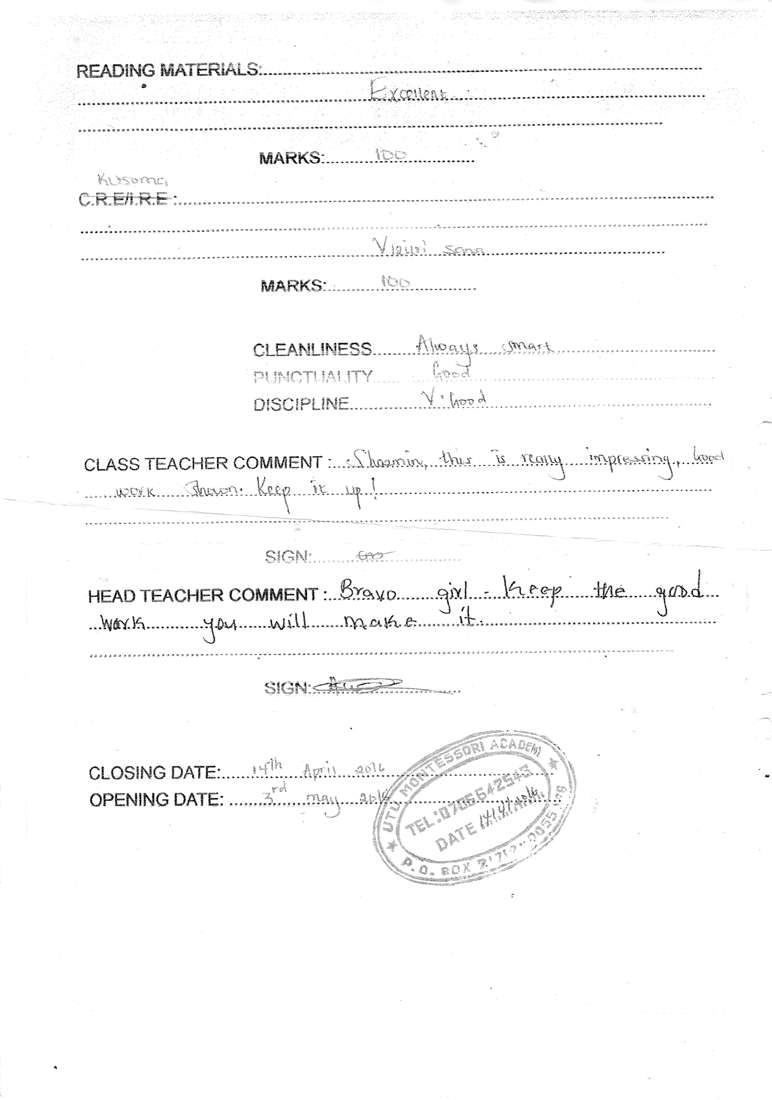 READING MATERIALS:
Excellent
MARKS: 100
Kusoma
C.R.E/I.R.E :
Vizuri sana
MARKS: 100
CLEANLINESS Always smart
PUNCTUALITY Good
DISCIPLINE V. Good
CLASS TEACHER COMMENT : this is really impressing, Good
work shown. Keep it up!
SIGN:
HEAD TEACHER COMMENT : Bravo girl - Keep the good
work you will make it.
SIGN:
CLOSING DATE: 14th April 2016
OPENING DATE: 3rd may 2016
UTU MONTESSORI ACADEMY
TEL:0706542543
DATE
P.O. BOX